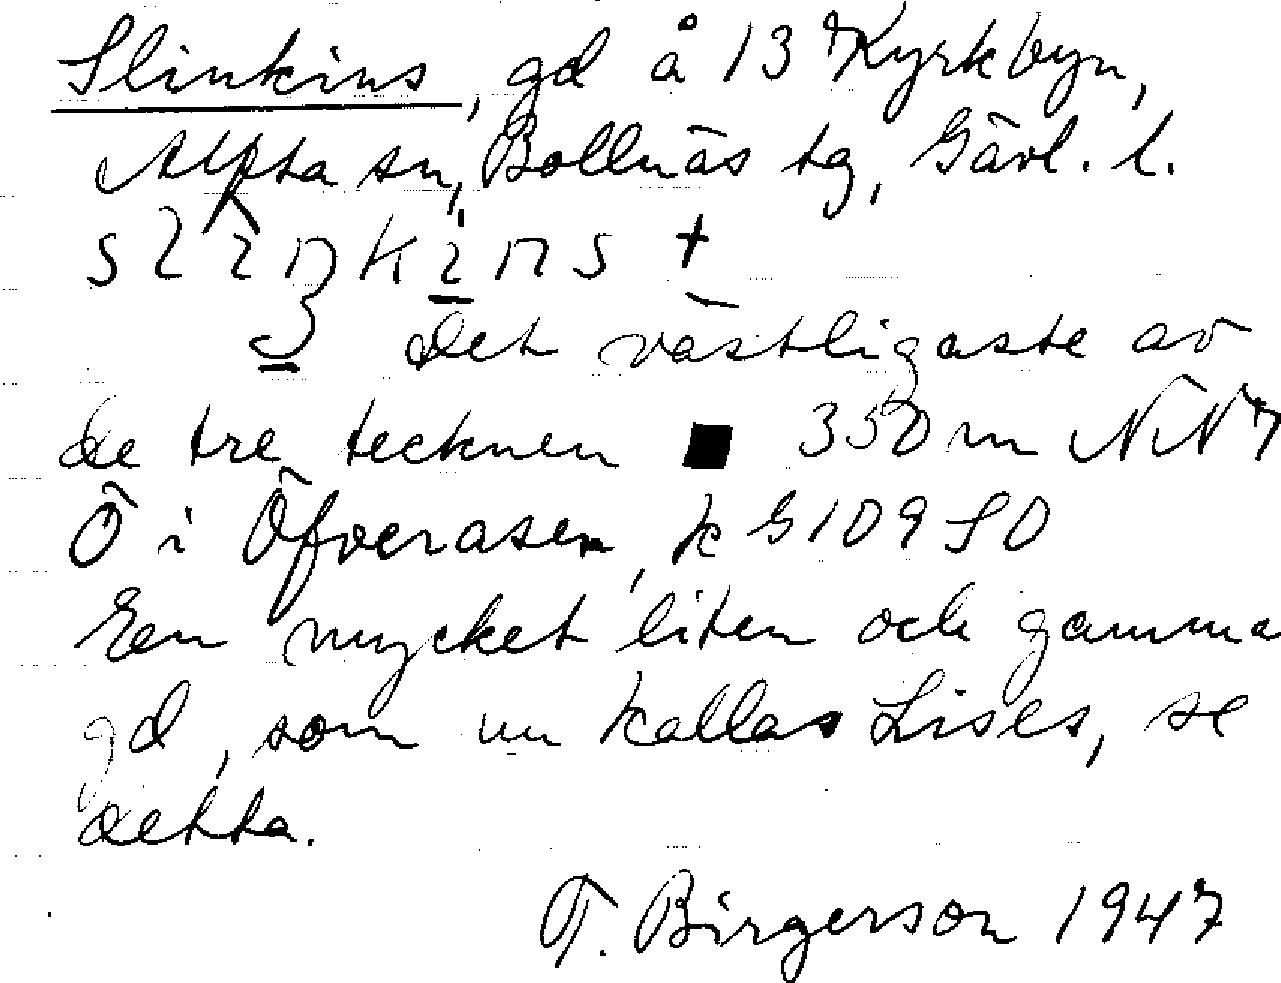 Slinkins, gd å 13 Kyrkbyn,
Alfta sn, Bollnäs tg, Gävl. l.
Det västligaste av
de tre tecknen ■ 350 m NNV
Ö i Öfverasen, k G109 SO
En mycket liten och gamma
gd, som nu kallas Lises, se
detta.
T. Birgerson 1947